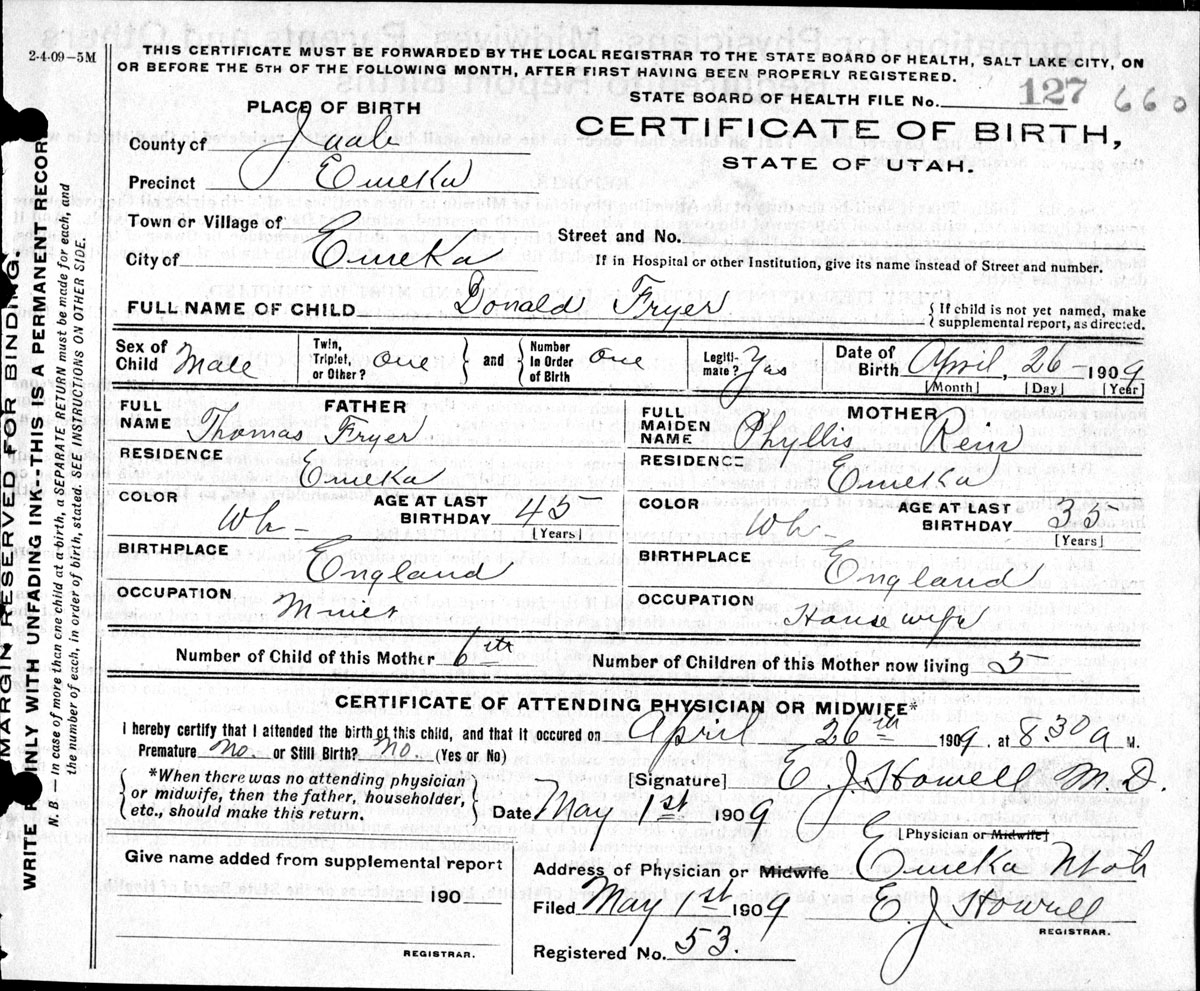 2-4-09–5M
THIS CERTIFICATE MUST BE FORWARDED BY THE LOCAL REGISTRAR TO THE STATE BOARD OF HEALTH, SALT LAKE CITY, ON
OR BEFORE THE 5TH OF THE FOLLOWING MONTH, AFTER FIRST HAVING BEEN PROPERLY REGISTERED.
STATE BOARD OF HEALTH FILE No. 127 660
PLACE OF BIRTH
CERTIFICATE OF BIRTH,
STATE OF UTAH.
County of Juab
Precinct Eureka
Town or Village of
Street and No.
City of Eureka
If in Hospital or other Institution, give its name instead of Street and number.
FULL NAME OF CHILD Donald Fryer
{ If child is not yet named, make
{ supplemental report, as directed.
Sex of Child Male
Twin, Triplet, or Other? one } and { Number In Order of Birth one
Legiti-mate? Yas
Date of Birth April, 26 – 1909
[Month] [Day] [Year]
FATHER
FULL NAME Thomas Fryer
RESIDENCE Eureka
COLOR Wh –
AGE AT LAST BIRTHDAY 45
[Years]
BIRTHPLACE England
OCCUPATION Miner
MOTHER
FULL MAIDEN NAME Phyllis
RESIDENCE Eureka
COLOR Wh –
AGE AT LAST BIRTHDAY 35
[Years]
BIRTHPLACE England
OCCUPATION House wife
Number of Child of this Mother 6th
Number of Children of this Mother now living 5
CERTIFICATE OF ATTENDING PHYSICIAN OR MIDWIFE*
I hereby certify that I attended the birth of this child, and that it occured on April 26th 1909, at 8 30 a M.
Premature No or Still Birth? No. (Yes or No)
{ *When there was no attending physician
or midwife, then the father, householder,
etc., should make this return. }
[Signature] E. J. Howell M.D.
Date May 1st 1909
[Physician or Midwife]
Give name added from supplemental report
190
REGISTRAR.
Address of Physician or Midwife Eureka Utah
Filed May 1st 1909 E. J Howell
REGISTRAR.
Registered No. 53.
MARGIN RESERVED FOR BINDING.
WRITE ONLY WITH UNFADING INK--THIS IS A PERMANENT RECORD
N. B.—In case of more than one child at a birth, a SEPARATE RETURN must be made for each, and
the number of each, in order of birth, stated. SEE INSTRUCTIONS ON OTHER SIDE.